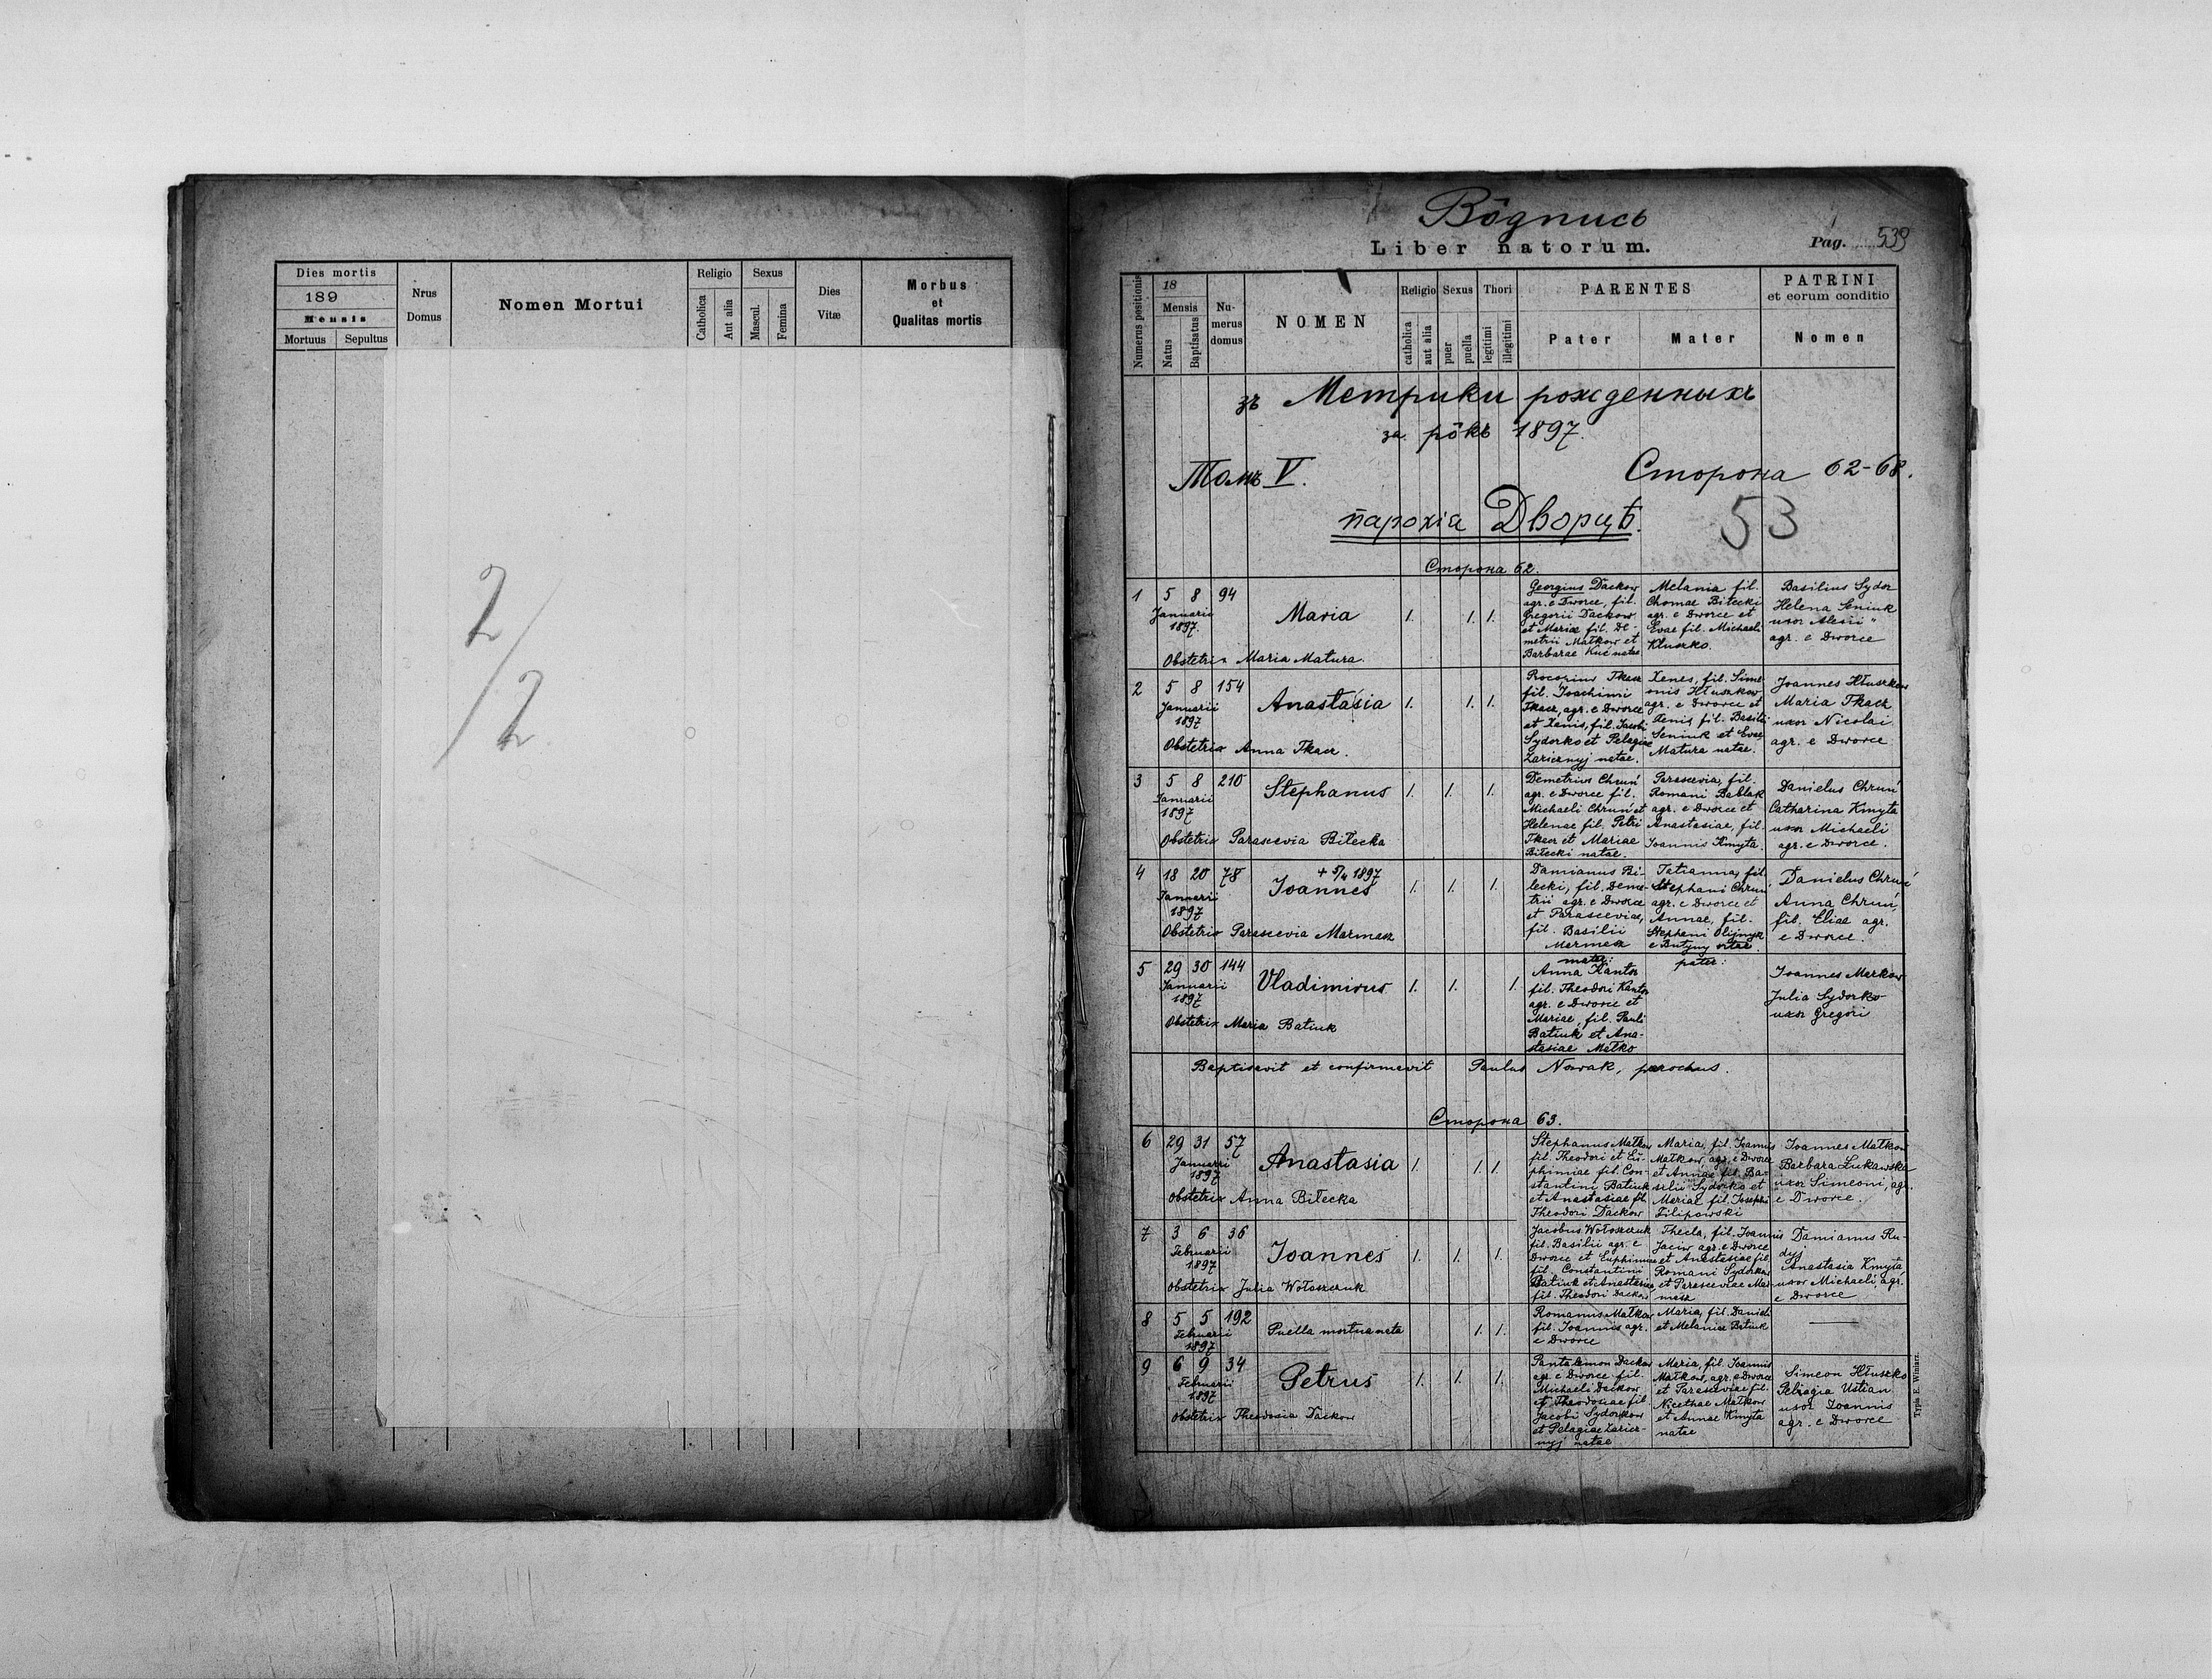 Dies mortis
189
Mensis
Mortuus Sepultus
Nrus
Domus
Nomen Mortui
Religio
Catholica
Aut alia
Sexus
Mascul.
Femina
Dies
Vitæ
Morbus
et
Qualitas mortis
2/2
Вôдпись
Liber natorum.
Pag. 539
Numerus positionis
18
Mensis
Natus
Baptisatus
Nu-
merus
domus
NOMEN
Religio
catholica
aut alia
Sexus
puer
puella
Thori
legitimi
illegitimi
PARENTES
Pater
Mater
PATRINI
et eorum conditio
Nomen
зъ Метрики рожденныхъ
за рôкъ 1897.
Томъ V.
Сторона 62-68.
парохіа Дворцѣ.
53
Сторона 62.
1
5 8 94
Januarii
1897.
Maria
1. 1. 1.
Obstetrix Maria Matura.
Georgius Dackow
agr. e Dworce, fil.
Gregorii Dackow
et Mariae fil. De-
metrii Matkow et
Barbarae Kuć natae
Melania fil.
Thomae Biłecki
agr. e Dworce et
Evae fil. Michaeli
Kluszko.
Basilius Sydor
Helena Seniuk
uxor Alexii
agr. e Dworce
2
5 8 154
Januarii
1897
Anastasia
1. 1. 1.
Obstetrix Anna Tkacz.
Procopius Tkacz
fil. Joachimi
Tkacz, agr. e Dworce
et Xenis, fil. Jacobi
Sydorko et Pelagiae
Zaricznyj natae.
Xenes, fil. Sime-
onis Hłuszkow
agr. e Dworce et
Xenis fil. Basilii
Seniuk et Evae
Matura natae.
Joannes Hłuszkow
Maria Tkacz
uxor Nicolai
agr. e Dworce
3
5 8 210
Januarii
1897
Stephanus
1. 1. 1.
Obstetrix Parascevia Biłecka
Demetrius Chruń
agr. e Dworce fil.
Michaeli Chruń et
Helenae fil. Petri
Tkacz et Mariae
Biłecki natae.
Parascevia, fil.
Romani Bablak
agr. e Dworce et
Anastasiae, fil.
Joannis Kmyta.
Danielus Chruń
Catharina Kmyta
uxor Michaeli
agr. e Dworce.
4
18 20 78
Januarii
1897
Joannes
1. 1. 1.
Obstetrix Parascevia Marmasz
Damianus Bi-
lecki, fil. Deme-
trii agr. e Dworce
et Parasceviae,
fil. Basilii
Marmasz
Tatianna, fil.
Stephani Chruń
agr. e Dworce et
Annae, fil.
Stephani Olijnyk
e Butyny ortae.
Danielus Chruń
Anna Chruń,
fil. Eliae agr.
e Dworce.
5
29 30 144
Januarii
1897
Vladimirus
1. 1. 1.
Obstetrix Maria Batiuk
mater:
Anna Kantor
fil. Theodori Kantor
agr. e Dworce et
Mariae, fil. Pauli
Batiuk et Ana-
stasiae Matko
pater:
Joannes Markow
Julia Sydorko
uxor Gregori
Baptisavit et confirmavit Paulus Nowak, parochus.
Сторона 63.
6
29 31 57
Januarii
1897
Anastasia
1. 1. 1.
Obstetrix Anna Biłecka
Stephanus Matkow
fil. Theodori et Eu-
phimiae fil. Con-
stantini Batiuk
et Anastasiae fil.
Theodori Dackow
Maria, fil. Joannis
Matkow, agr. e Dworce
et Annae fil. Ba-
silii Sydorko et
Mariae fil. Josephi
Filipowski
Joannes Matkow
Barbara Łukawska
uxor Simeoni, agr.
e Dworce.
7
3 6 36
Februarii
1897
Joannes
1. 1. 1.
Obstetrix Julia Wołoszczuk
Jacobus Wołoszczuk
fil. Basilii agr. e
Dworce et Euphimiae
fil. Constantini
Batiuk et Anastasiae
fil. Theodori Dackow
Thecla, fil. Joannis
Jaciw agr. e Dworce
et Anastasiae fil.
Romani Sydorkow
et Parasceviae Mar-
masz
Damianus Ru-
dyj
Anastasia Kmyta,
uxor Michaeli, agr.
e Dworce
8
5 5 192
Februarii
1897
Puella mortua nata
1. 1.
Romanus Matkow
fil. Joannis agr.
e Dworce
Maria, fil. Danieli
et Melaniae Batiuk
9
6 9 34
Februarii
1897
Petrus
1. 1. 1.
Obstetrix Theodosia Dackow
Pantalemon Dackow
agr. e Dworce fil.
Michaeli Dackow
et Theodosiae fil.
Jacobi Sydorkow
et Pelagiae Zaricz-
nyj natae
Maria, fil. Joannis
Matkow, agr. e Dworce
et Parasceviae fil.
Nicethae Matkow
et Annae Kmyta
natae
Simeon Hłuszko
Pelagia Ustian
uxor Joannis
agr. e Dworce
Typis E. Winiarz.